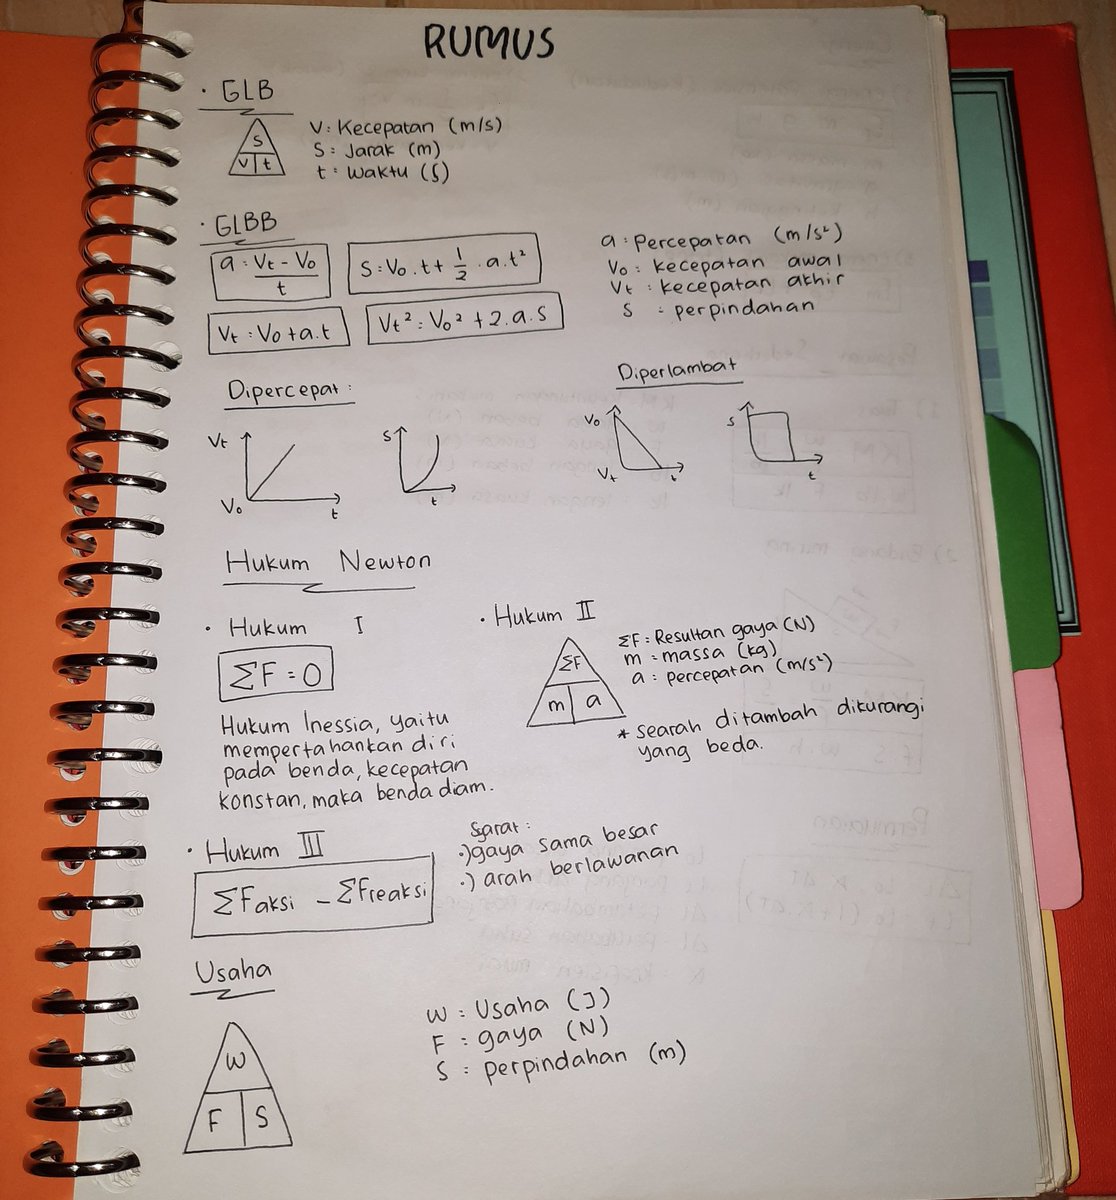 RUMUS
• GLB
S
V t
V : Kecepatan (m/s)
S : Jarak (m)
t : Waktu (s)
• GLBB
a : Vt - Vo / t
S : Vo . t + 1/2 . a . t²
Vt : Vo + a . t
Vt² : Vo² + 2 . a . s
a : percepatan (m/s²)
Vo : kecepatan awal
Vt : kecepatan akhir
S : perpindahan
Dipercepat :
Vt
Vo
t
S
t
Diperlambat
Vo
Vt
t
S
t
Hukum Newton
• Hukum I
ΣF = 0
Hukum Inessia, yaitu
mempertahankan diri
pada benda, kecepatan
konstan, maka benda diam.
• Hukum II
ΣF
m a
ΣF : Resultan gaya (N)
m : massa (kg)
a : percepatan (m/s²)
* searah ditambah dikurangi
yang beda.
• Hukum III
ΣFaksi - ΣFreaksi
Sarat :
•) gaya sama besar
•) arah berlawanan
Usaha
W
F S
W : Usaha (J)
F : gaya (N)
S : perpindahan (m)